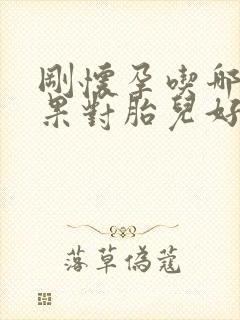 剛懷孕喫哪
果對胎兒好
落草偽蔻